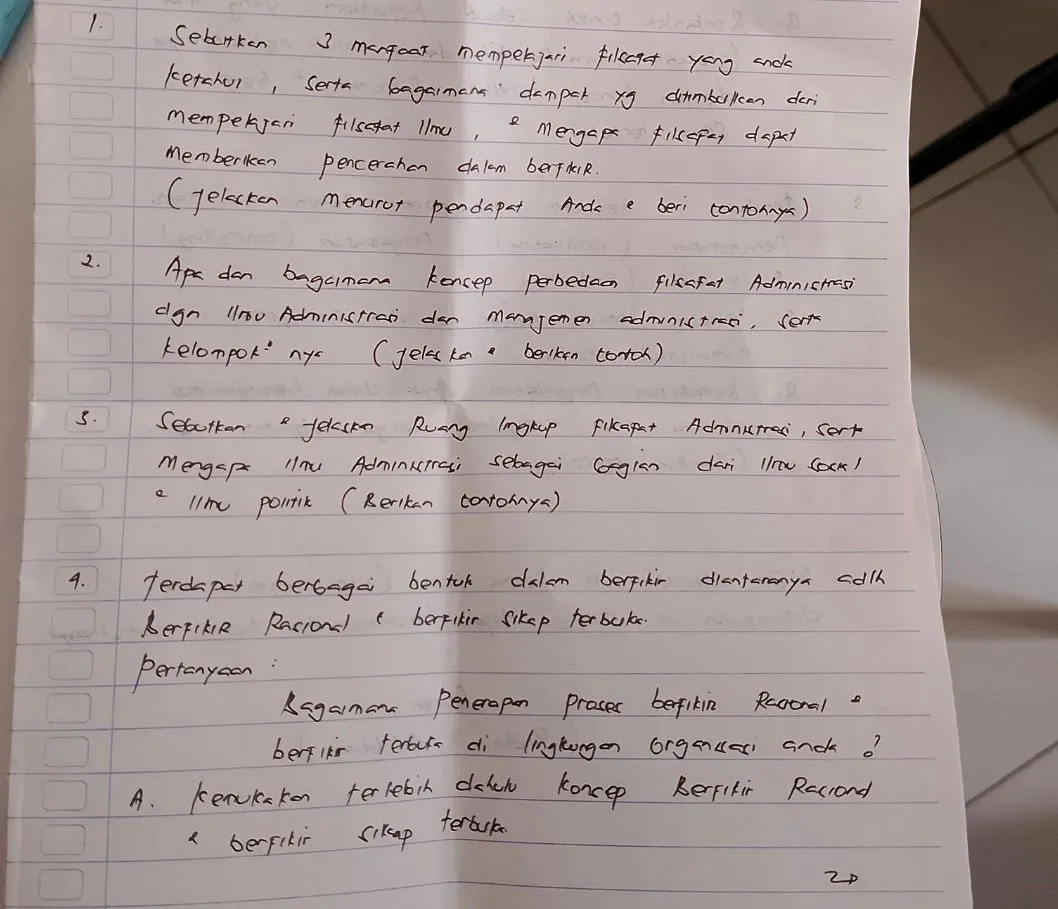 1. Sebutkan 3 manfaat mempelajari filsafat yang anda
ketahui, serta bagaimana dampak yg ditimbulkan dari
mempelajari filsafat Ilmu, & Mengapa filsafat dapat
memberikan pencerahan dalam berfikir.
(Jelaskan menurut pendapat Anda & beri contohnya)
2. Apa dan bagaimana konsep perbedaan filsafat Administrasi
dgn Ilmu Administrasi dan manajemen administrasi, serta
kelompok² nya (jelaskan & berikan contoh)
3. Sebutkan & jelaskan Ruang lingkup filsafat Administrasi, serta
Mengapa ilmu Administrasi sebagai bagian dari Ilmu sosial
& Ilmu politik (Berikan contohnya)
4. Terdapat berbagai bentuk dalam berfikir diantaranya adlh
Berfikir Rasional & berfikir sikap terbuka.
Pertanyaan :
Bagaimana Penerapan proses berfikir Rasional &
berfikir terbuka di lingkungan organisasi anda ?
A. Kemukakan terlebih dahulu konsep Berfikir Rasional
& berfikir sikap terbuka.